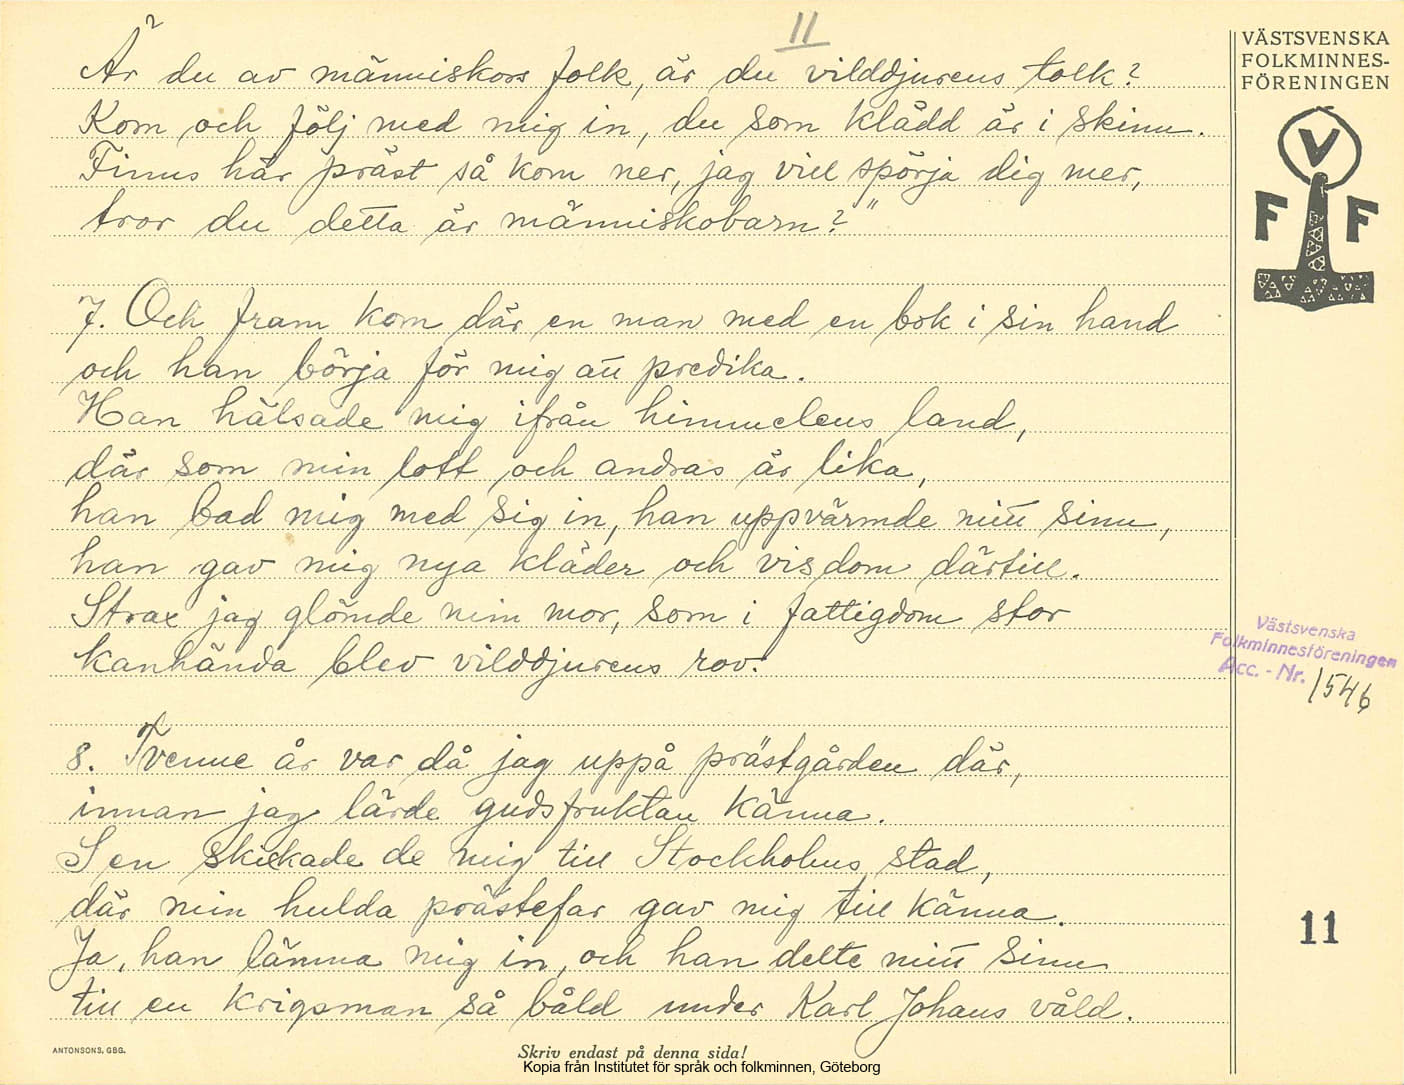 11
Är du av människors folk, är du vilddjurens tolk?
Kom och följ med mig in, du som klädd är i skinn.
Finns här präst så kom ner, jag vill spörja dig mer,
tror du detta är människobarn?"
7. Och fram kom där en man med en bok i sin hand
och han börja för mig att predika.
Han hälsade mig ifrån himmelens land,
där som min lott och andras är lika,
han bad mig med sig in, han uppvärmde mitt sinn,
han gav mig nya kläder och visdom därtill.
Strax jag glömde min mor, som i fattigdom stor
kanhända blev vilddjurens rov.
8. Tvenne år var då jag uppå prästgården där,
innan jag lärde gudsfruktan känna.
Sen skickade de mig till Stockholms stad,
där min hulda prästefar gav mig till känna.
Ja, han lämna mig in, och han delte mitt sinn
till en krigsman så båld under Karl Johans våld.
VÄSTSVENSKA
FOLKMINNES-
FÖRENINGEN
V
F F
Västsvenska
Folkminnesföreningen
Acc. - Nr. 1546
11
ANTONSONS, GBG.
Skriv endast på denna sida!
Kopia från Institutet för språk och folkminnen, Göteborg